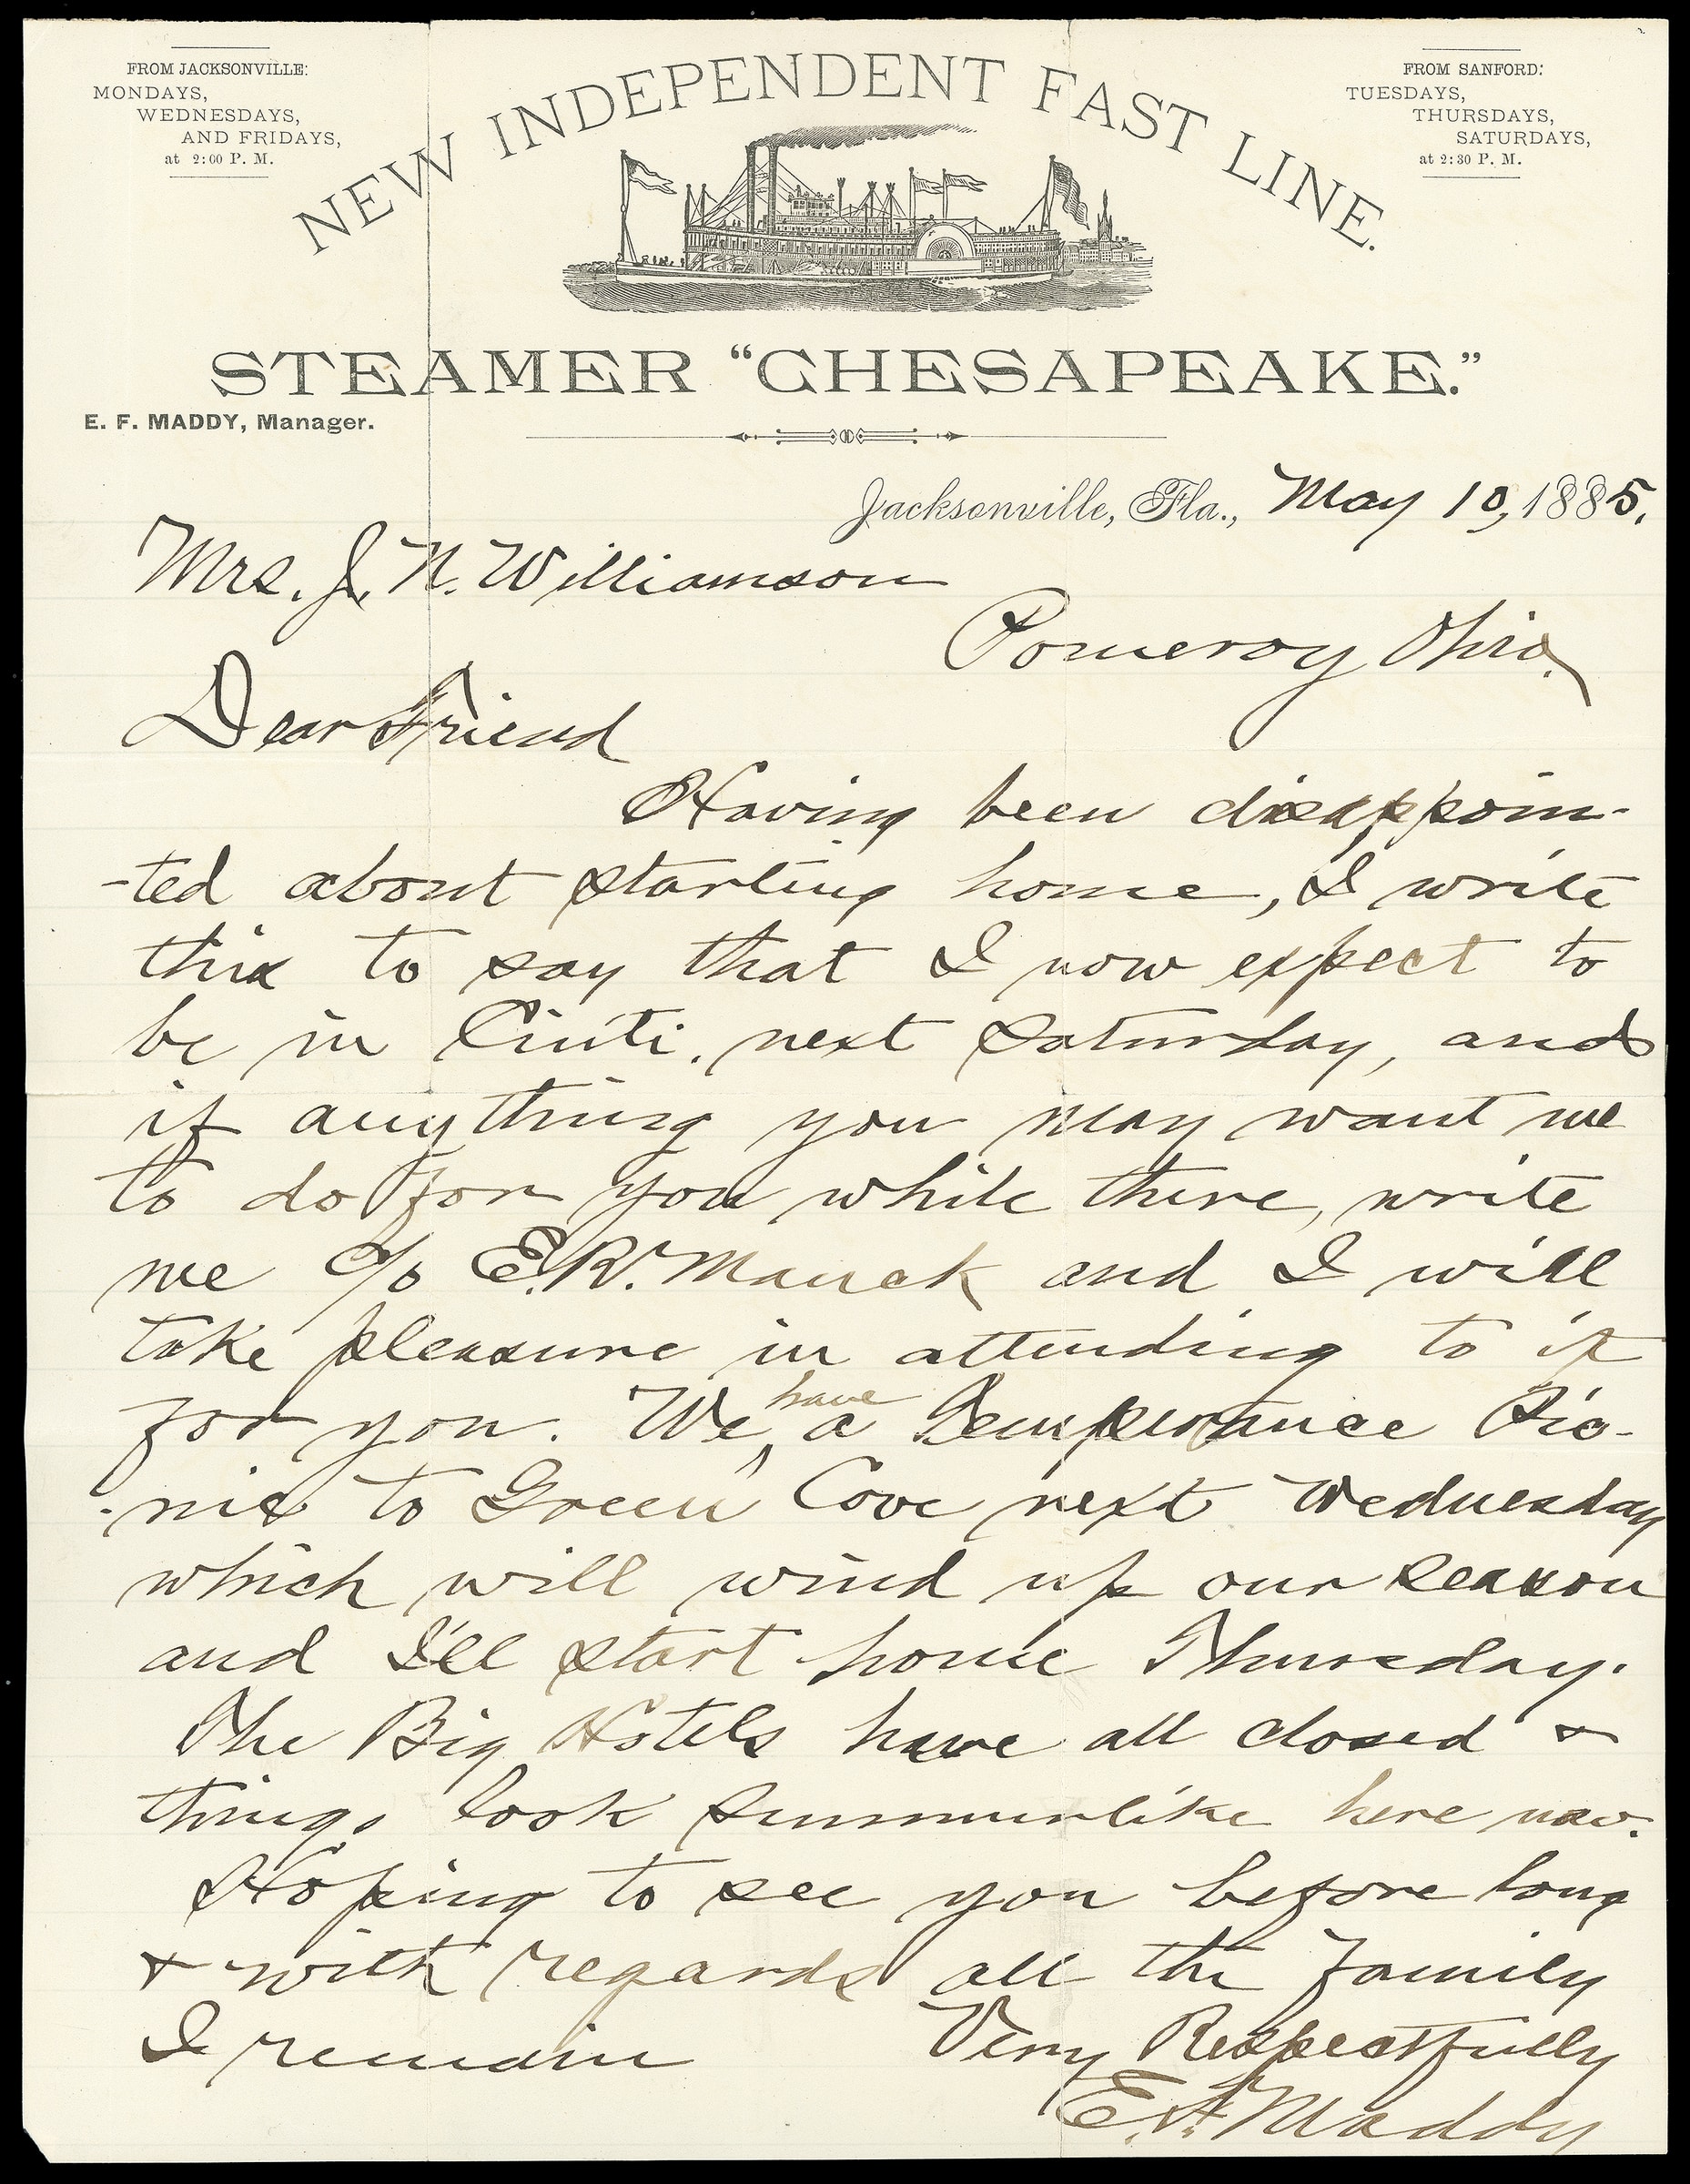 FROM JACKSONVILLE:
MONDAYS,
WEDNESDAYS,
AND FRIDAYS,
at 2:00 P. M.
NEW INDEPENDENT FAST LINE.
FROM SANFORD:
TUESDAYS,
THURSDAYS,
SATURDAYS,
at 2:30 P. M.
STEAMER "CHESAPEAKE."
E. F. MADDY, Manager.
Jacksonville, Fla., May 10, 1885.
Mrs. J. N. Williamson
Pomeroy Ohio.
Dear Friend
Having been disappoin-
-ted about starting home, I write
this to say that I now expect to
be in Cinti. next Saturday, and
if anything you may want me
to do for you while there, write
me c/o E.R. Mauck and I will
take pleasure in attending to it
for you. We have a Temperance Pic-
-nic to Green Cove next Wednesday
which will wind up our season
and I'll start home Thursday.
The Big Hotels have all closed &
things look summerlike here now.
Hoping to see you before long
& with regards all the family
I remain Very Respectfully
E. F. Maddy